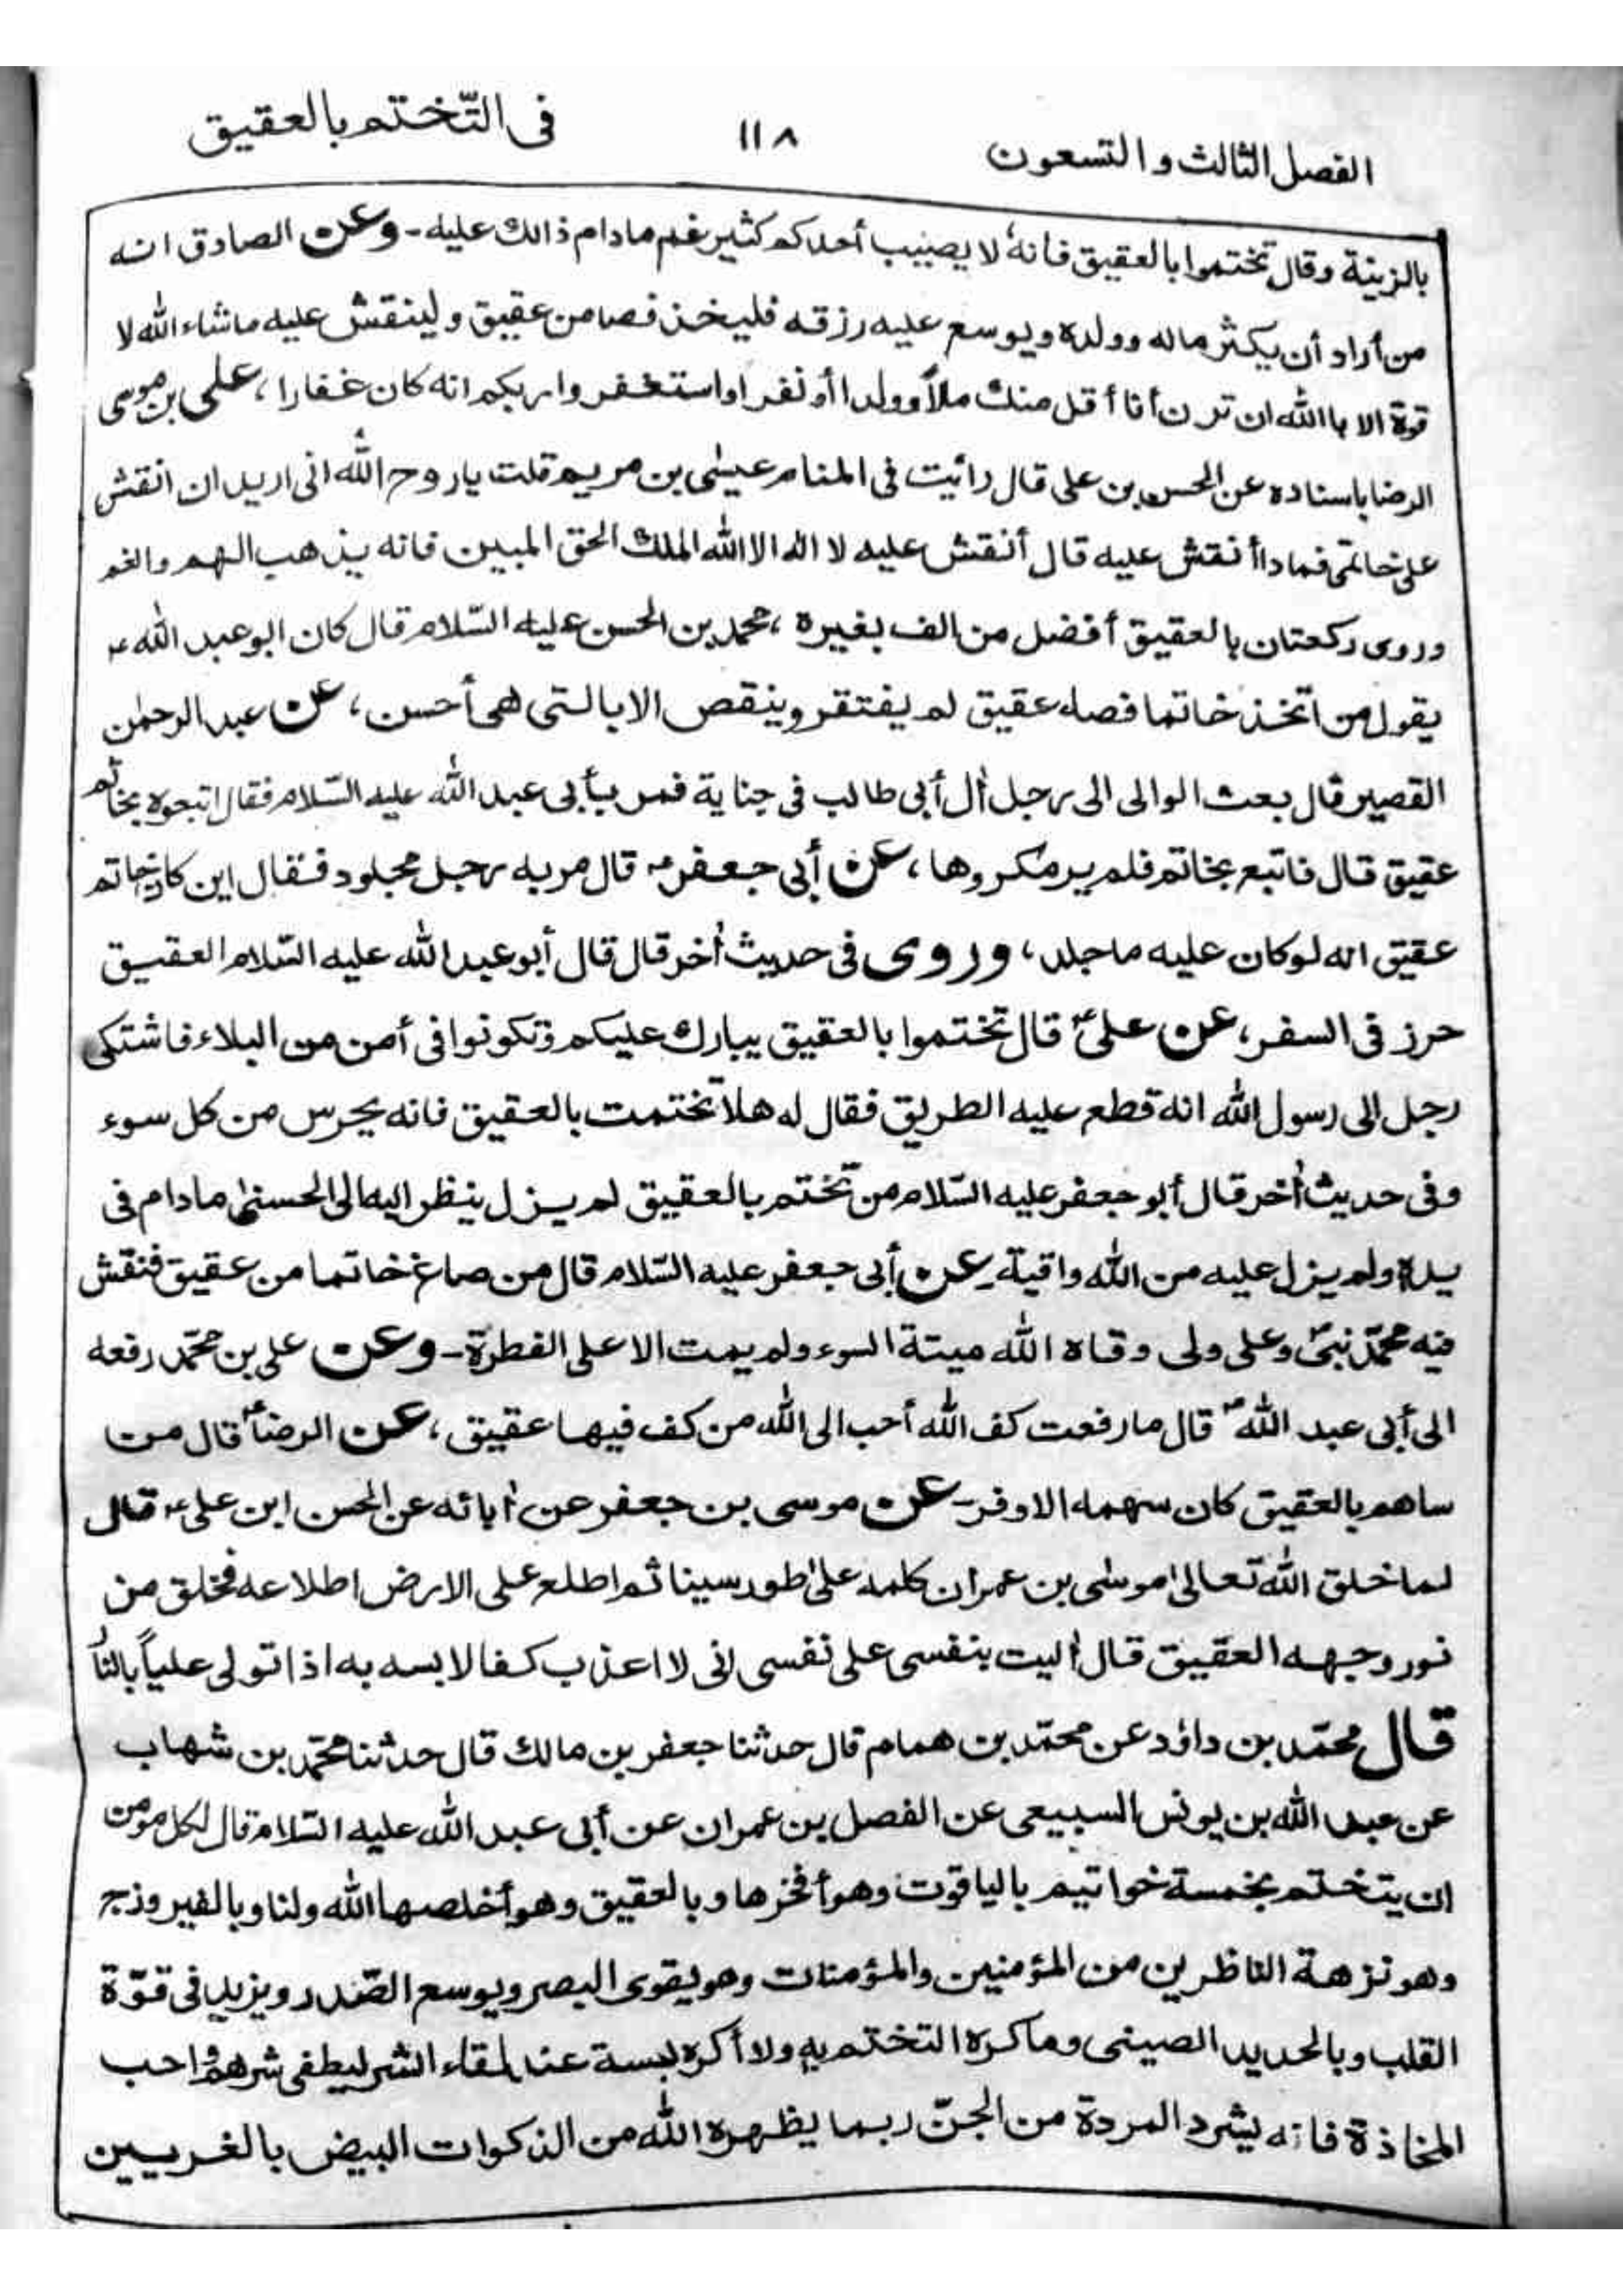 الفصل الثالث والتسعون ١١٨ فى التّختم بالعقيق
بالزينة وقال تختموا بالعقيق فانهٗ لا يصيب أحدكم كثير غم مادام ذالك عليه - وعن الصادق انه
من أراد أن يكثر ماله وولده ويوسع عليه رزقه فليخذ فصا من عقيق ولينقش عليه ماشاء الله لا
قوة الا باالله ان ترن أنا أقل منك ملاً وولدا أو نفرا واستغفروا ربكم انه كان غفارا ، على بن موسى
الرضا باسناده عن الحسن بن على قال رائيت فى المنام عيسٰى بن مريم قلت يا روح الله انى اريد ان انقش
على خاتمى فماذا أنقش عليه قال أنقش عليه لا اله الا الله الملك الحق المبين فانه يذهب الهم والغم
وروى ركعتان بالعقيق أفضل من الف بغيره ، محمد بن الحسن عليه السّلام قال كان ابو عبد الله ع
يقول من اتخذ خاتما فصه عقيق لم يفتقر وينقص الا بالتى هى أحسن ، عن عبد الرحمٰن
القصير قال بعث الوالى الى رجل أٰل أبى طالب فى جناية فمر بأبى عبد الله عليه السّلام فقال اتبعوه بخاتم
عقيق قال فاتبع بخاتم فلم ير مكروها ، عن أبى جعفر ع قال مر به رجل مجلود فقال اين كان خاتم
عقيق انه لو كان عليه ما جلد ، وروى فى حديث أٰخر قال قال أبو عبد الله عليه السّلام العقيق
حرز فى السفر ، عن علىؑ قال تختموا بالعقيق يبارك عليكم وتكونوا فى أمن من البلاء فاشتكى
رجل الى رسول الله انه قطع عليه الطريق فقال له هلا تختمت بالعقيق فانه يحرس من كل سوء
وفى حديث أٰخر قال أبو جعفر عليه السّلام من تختم بالعقيق لم يزل ينظر اليه الى الحسنىٰ مادام فى
يده ولم يزل عليه من الله واقية - عن أبى جعفر عليه السّلام قال من صاغ خاتما من عقيق فنقش
فيه محمّد نبىّ وعلى ولى وقاه الله ميتة السوء ولم يمت الا على الفطرة - وعن على بن محمّد رفعه
الى أبى عبد اللهؑ قال ما رفعت كف الله أحب الى الله من كف فيها عقيق ، عن الرضاؑ قال من
ساهم بالعقيق كان سهمه الاوفر - عن موسى بن جعفر عن أٰبائه عن الحسن ابن على ع قال
لما خلق الله تعالىٰ موسٰى بن عمران كلمه علىٰ طور سينا ثم اطلع على الارض اطلاعه فخلق من
نور وجهه العقيق قال أٰليت بنفسى على نفسى انى لا اعذب كفا لا بسه به اذا تولى علياً بالنا
قال محمّد بن داؤد عن محمّد بن همام قال حدثنا جعفر بن مالك قال حدثنا محمّد بن شهاب
عن عبد الله بن يونس السبيعى عن الفصل بن عمران عن أبى عبد الله عليه السّلام قال لكل مومن
ان يتختم بخمسة خواتيم بالياقوت وهو أفخرها وبالعقيق وهو أخلصها الله ولنا وبالفيروزج
وهو نزهة الناظرين من المؤمنين والمؤمنات وهو يقوى البصر ويوسع الصّدر ويزيد فى قوّة
القلب وبالحديد الصينى وما كره التختم به ولا أكره لبسة عند لمقاء الشر ليطفى شرهم واحب
المخاذة فانه يشرد المردة من الجنّ ربما يظهره الله من الذكوات البيض بالغريبين